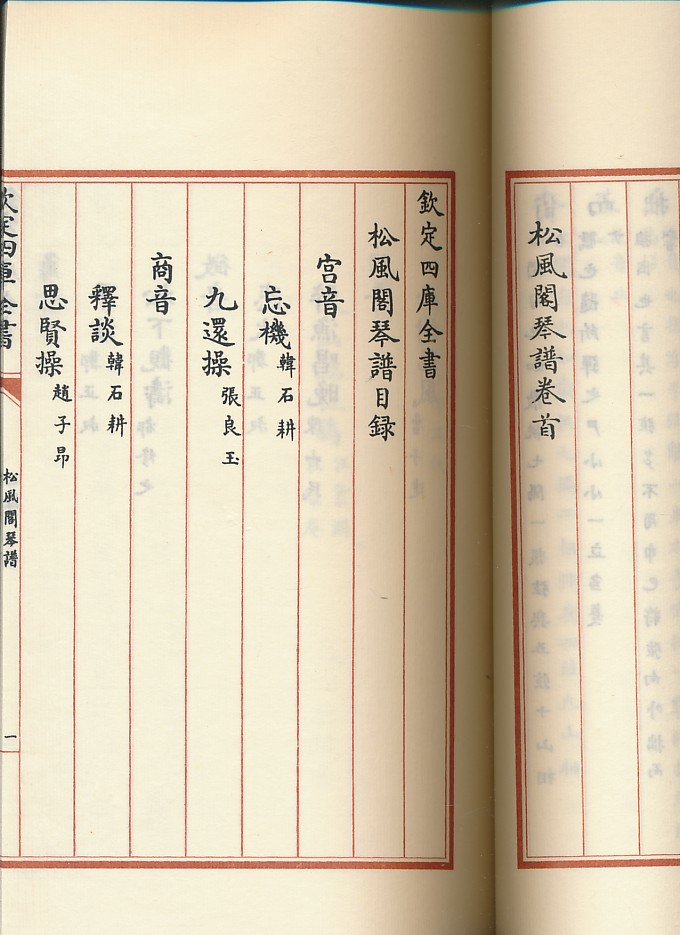 松風閣琴譜卷首
欽定四庫全書
松風閣琴譜目録
宮音
忘機 韓石耕
九還操 張良玉
商音
釋談 韓石耕
思賢操 趙子昂
欽定四庫全書
松風閣琴譜
一